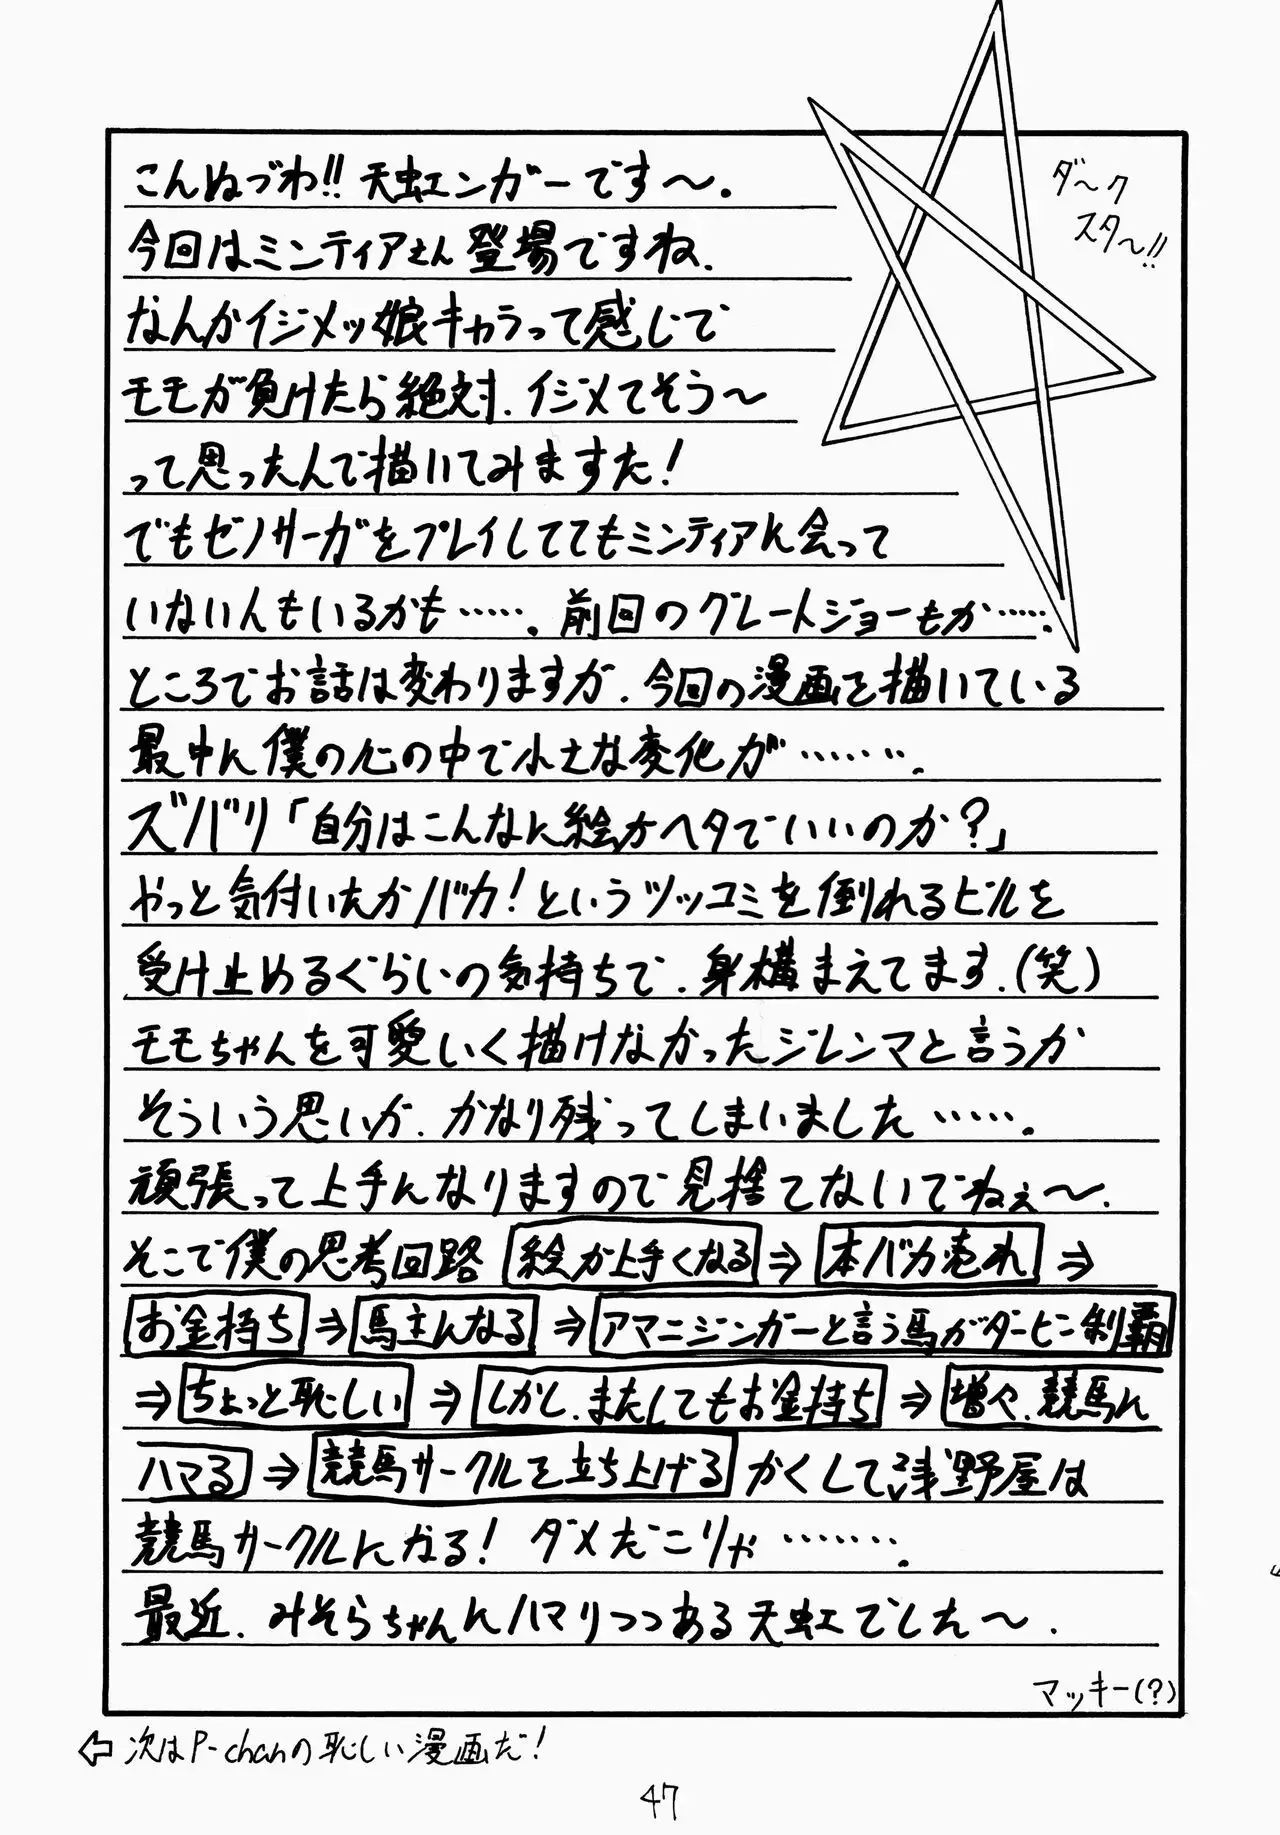 こんぬづわ!! 天虹ンガーです〜.
ダ〜ク
スタ〜!!
今回はミンティアさん登場ですね.
なんかイジメッ娘キャラって感じで
モモが負けたら絶対.イジメてそう〜
って思ったんで描いてみますた!
でもゼノサーガをプレイしててもミンティアに会って
いない人もいるかも……. 前回のグレートジョーもか…….
ところでお話は変わりますが.今回の漫画を描いている
最中に僕の心の中で小さな変化が…….
ズバリ「自分はこんなに絵がヘタでいいのか?」
やっと気付いたかバカ!というツッコミを倒れるビルを
受け止めるぐらいの気持ちで.身構まえてます.(笑)
モモちゃんを可愛いく描けなかったジレンマと言うか
そういう思いが.かなり残ってしまいました…….
頑張って上手になりますので見捨てないでねぇ〜.
そこで僕の思考回路 絵が上手くなる ⇒ 本バカ売れ ⇒
お金持ち ⇒ 馬主になる ⇒ アマニジンガーと言う馬がダービー制覇
⇒ ちょっと恥しい ⇒ しかし.またしてもお金持ち ⇒ 増々.競馬に
ハマる ⇒ 競馬サークルを立ち上げる かくして浅野屋は
競馬サークルになる! ダメだこりゃ…….
最近.みそらちゃんにハマりつつある天虹でした〜.
マッキー(?)
⇦ 次はP-chanの恥しい漫画だ!
47